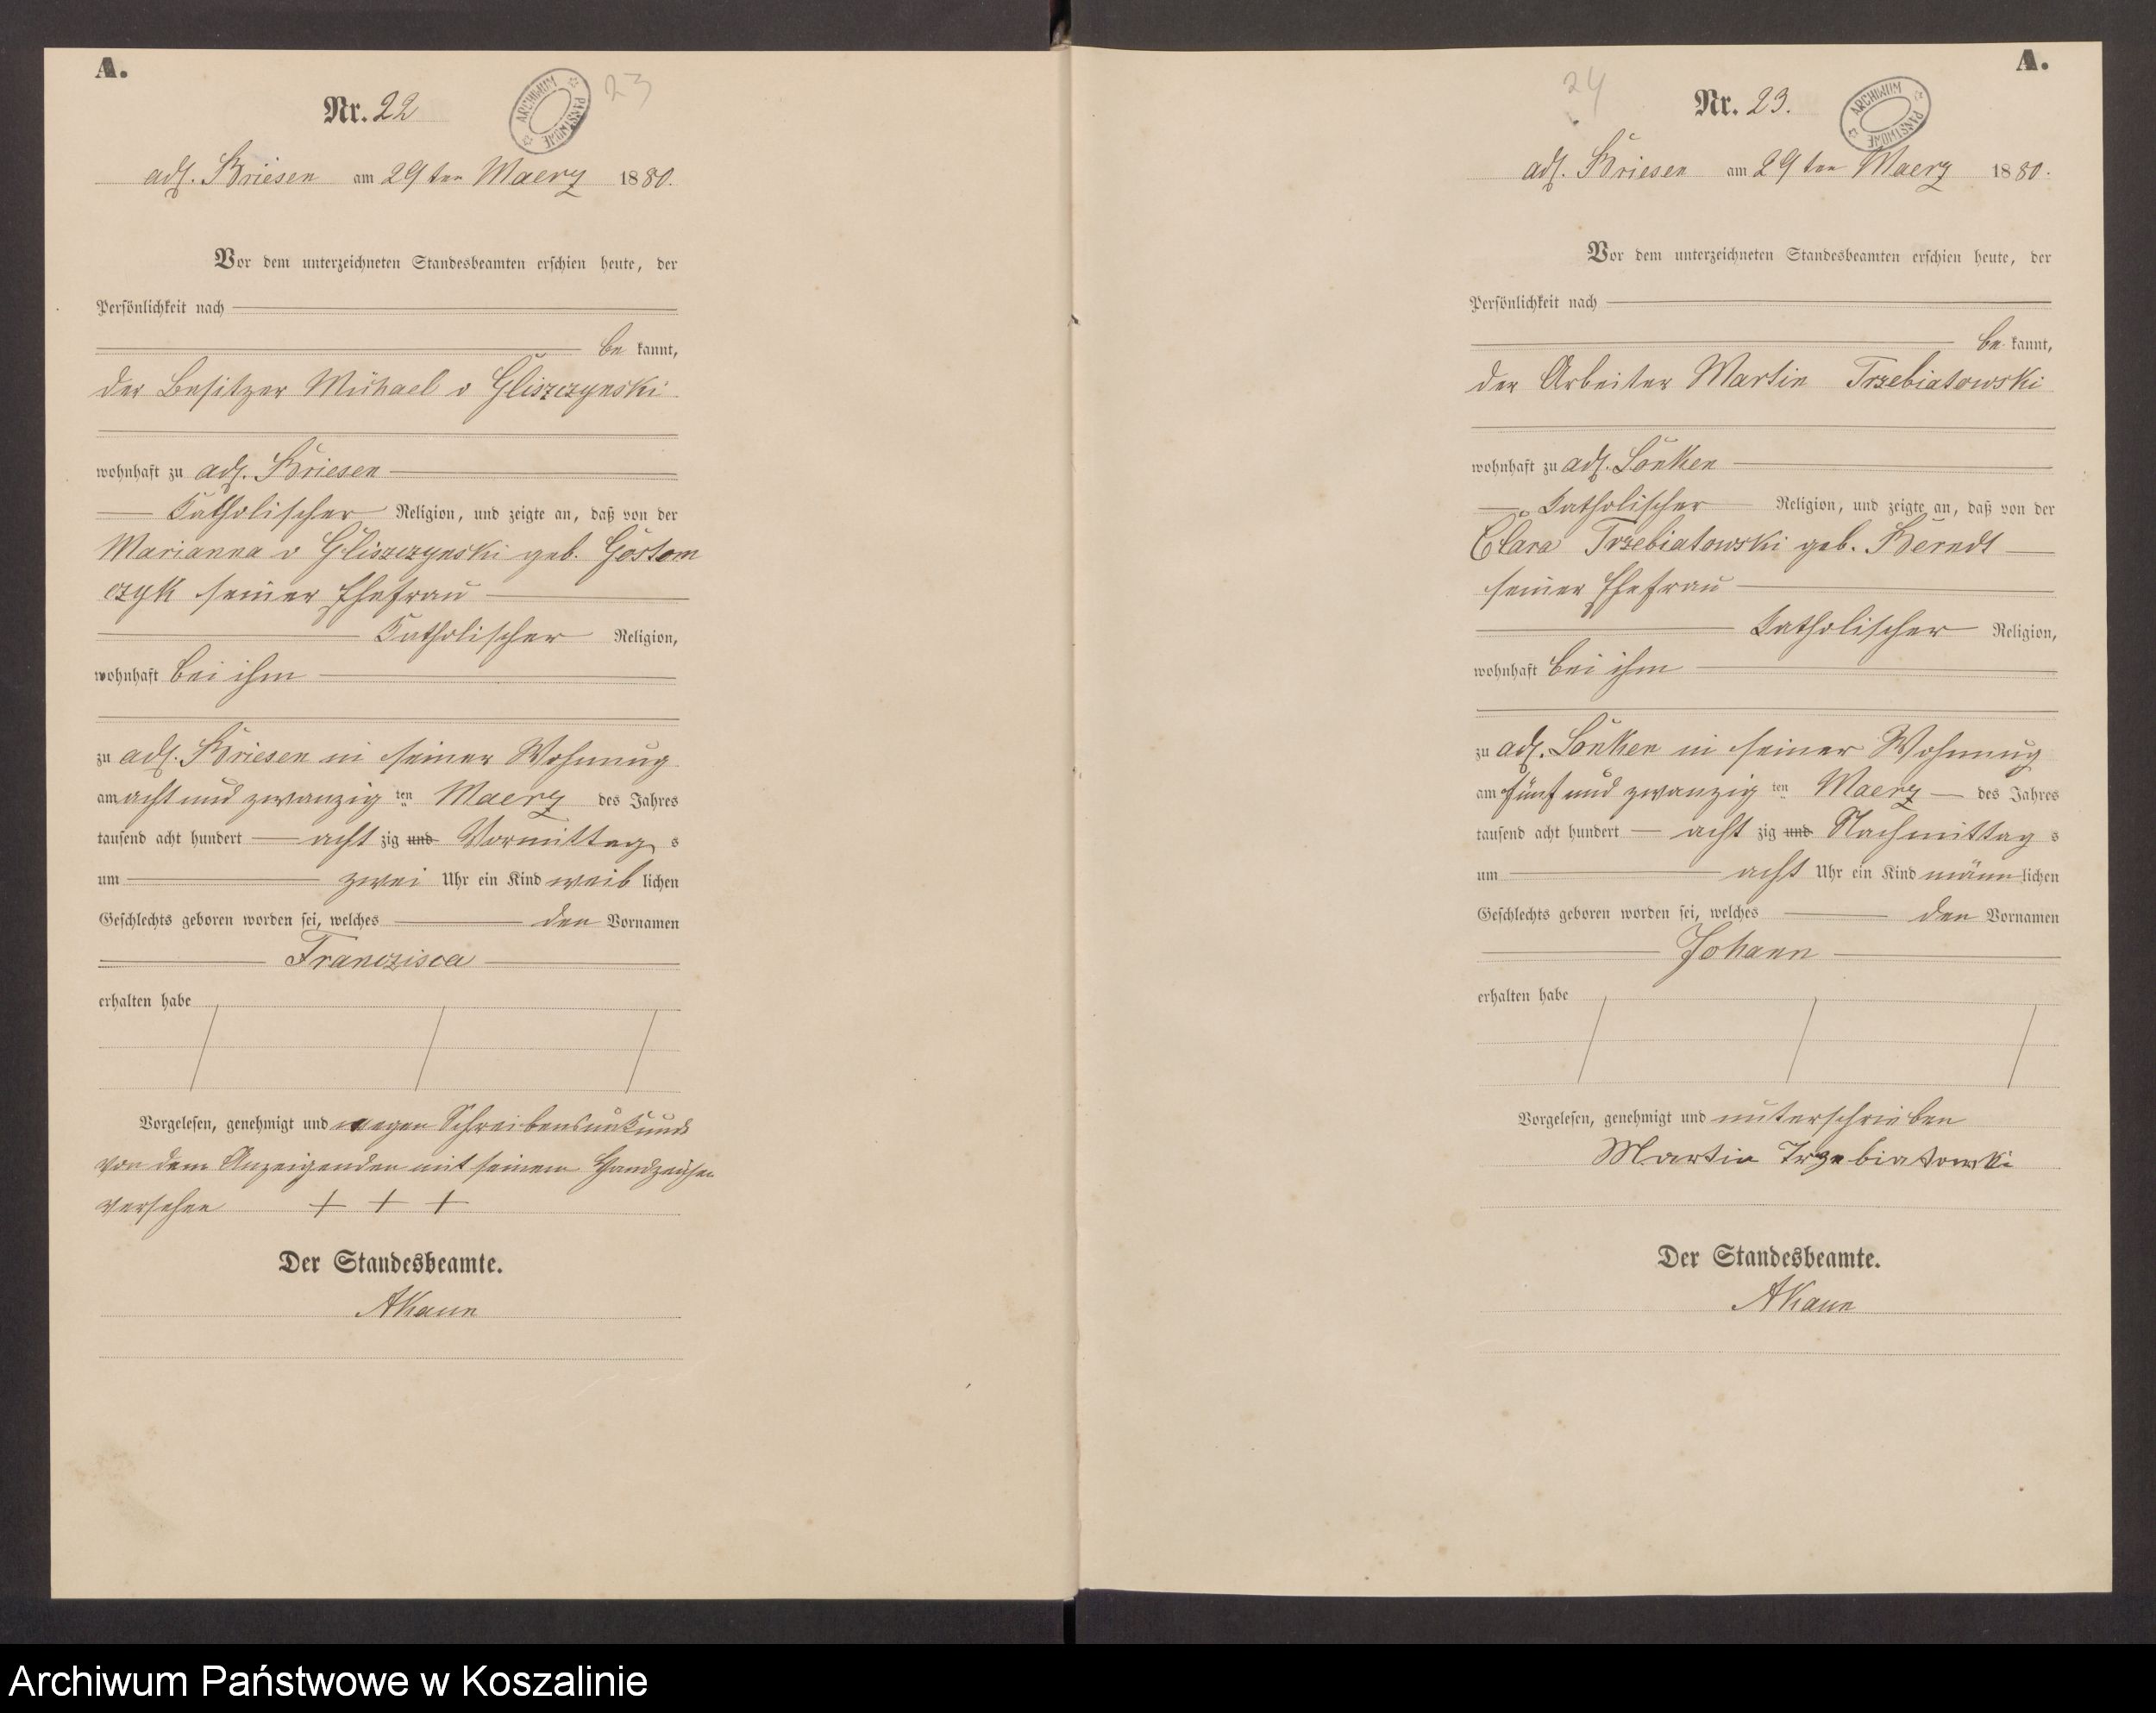 A.
Nr. 22
23
ARCHIWUM PAŃSTWOWE
adl. Briesen am 29ten Maerz 1880.
Vor dem unterzeichneten Standesbeamten erschien heute, der
Persönlichkeit nach
be kannt,
der Besitzer Michael v Gliszczynski
wohnhaft zu adl. Briesen
Katholischer Religion, und zeigte an, daß von der
Marianna v Gliszczynski geb. Gostom
czyk seiner Ehefrau
Katholischer Religion,
wohnhaft bei ihm
zu adl. Briesen in seiner Wohnung
am acht und zwanzig ten Maerz des Jahres
tausend acht hundert acht zig und Vormittag s
um zwei Uhr ein Kind weib lichen
Geschlechts geboren worden sei, welches den Vornamen
Franczisca
erhalten habe
Vorgelesen, genehmigt und wegen Schreibensunkunde
von dem Anzeigenden mit seinem Handzeichen
versehen + + +
Der Standesbeamte.
AKaun
A.
24
Nr. 23.
ARCHIWUM PAŃSTWOWE
adl. Briesen am 29ten Maerz 1880.
Vor dem unterzeichneten Standesbeamten erschien heute, der
Persönlichkeit nach
be kannt,
der Arbeiter Martin Trzebiatowski
wohnhaft zu adl. Lonken
Katholischer Religion, und zeigte an, daß von der
Clara Trzebiatowski geb. Berndt
seiner Ehefrau
Katholischer Religion,
wohnhaft bei ihm
zu adl. Lonken in seiner Wohnung
am fünf und zwanzig ten Maerz des Jahres
tausend acht hundert acht zig und Nachmittag s
um acht Uhr ein Kind männ lichen
Geschlechts geboren worden sei, welches den Vornamen
Johann
erhalten habe
Vorgelesen, genehmigt und unterschrieben
Martin Trzebiatowski
Der Standesbeamte.
AKaun
Archiwum Państwowe w Koszalinie